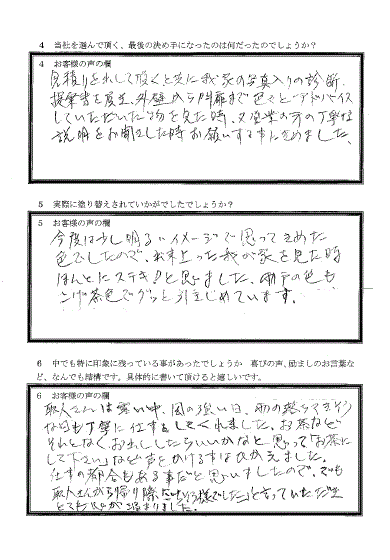 4 当社を選んで頂く、最後の決め手になったのは何だったのでしょうか？
4 お客様の声の欄
見積りをして頂くと共に我が家の写真入りの診断、
提案書を見、外壁から門扉まで色々とアドバイス
していただいた物を見た時、又営業の方の丁寧な
説明をお聞きした時お願いする事にきめました。
5 実際に塗り替えされていかがでしたでしょうか？
5 お客様の声の欄
今度は少し明るいイメージで思ってきめた
色でしたので、出来上った我が家を見た時
ほんとにステキ!!と思いました、雨戸の色も
こげ茶色でグッと引きしめています。
6 中でも特に印象に残っている事があったでしょうか 喜びの声、励ましのお言葉な
ど、なんでも結構です。具体的に書いて頂けると嬉しいです。
6 お客様の声の欄
職人さんは寒い中、風の強い日、雨の落ちてきそう
な日も丁寧に仕事をしてくれました。お茶など
それとなくお出ししたらいいかなと思って「お茶に
して下さい」など声とかける事はひかえました。
仕事の都合もある事だと思いましたので、でも
職人さんから帰り際「ごちそう様でした」と言っていただき
とても心が温まりました。